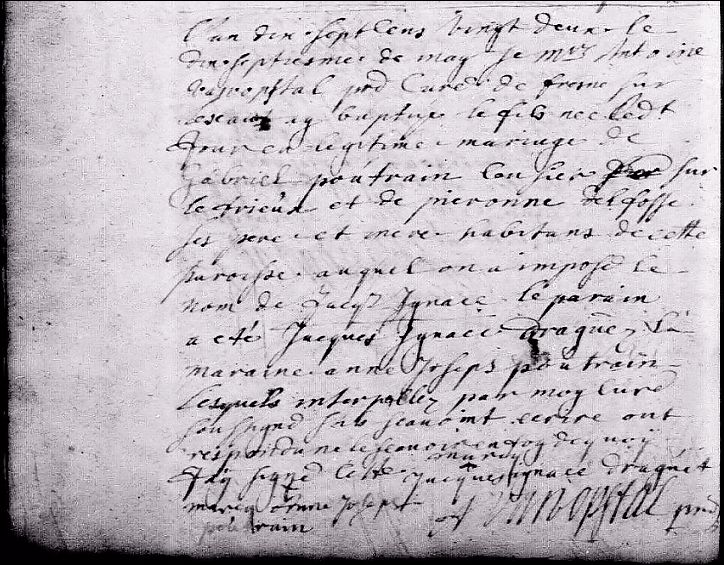 L'an dix sept cens vingt deux le
dix septiesme de may je Mre Antoine
Vanopstal prd Curé de fresne sur
escaut ay baptisé le fils né ledt
Jour en legitime mariage de
Gabriel poutrain sur
le trieux et de pieronne delfosse
ses pere et mere habitans de cette
paroisse auquel on a imposé le
nom de Jacqs Ignace le parain
a eté Jacques Ignace draguet la
maraine anne Joseph poutrain
Lesquels interpellez par moy Curé
soussigné scavoient ecrire ont
respondu ne le scavoir en foy de quoy
J'ay signé Jacques ignace draguet
marcq anne Joseph Vanopstal prd
poutrain